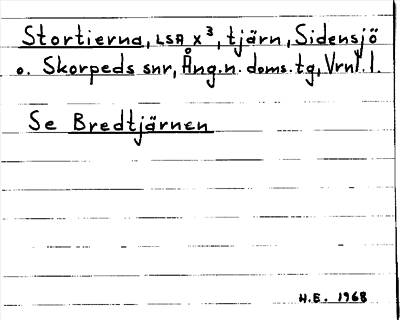 Stortierna, LSA x³, tjärn, Sidensjö
o. Skorpeds snr, Ång.n. doms.tg, Vrnl.l.
Se Bredtjärnen
H.E. 1968